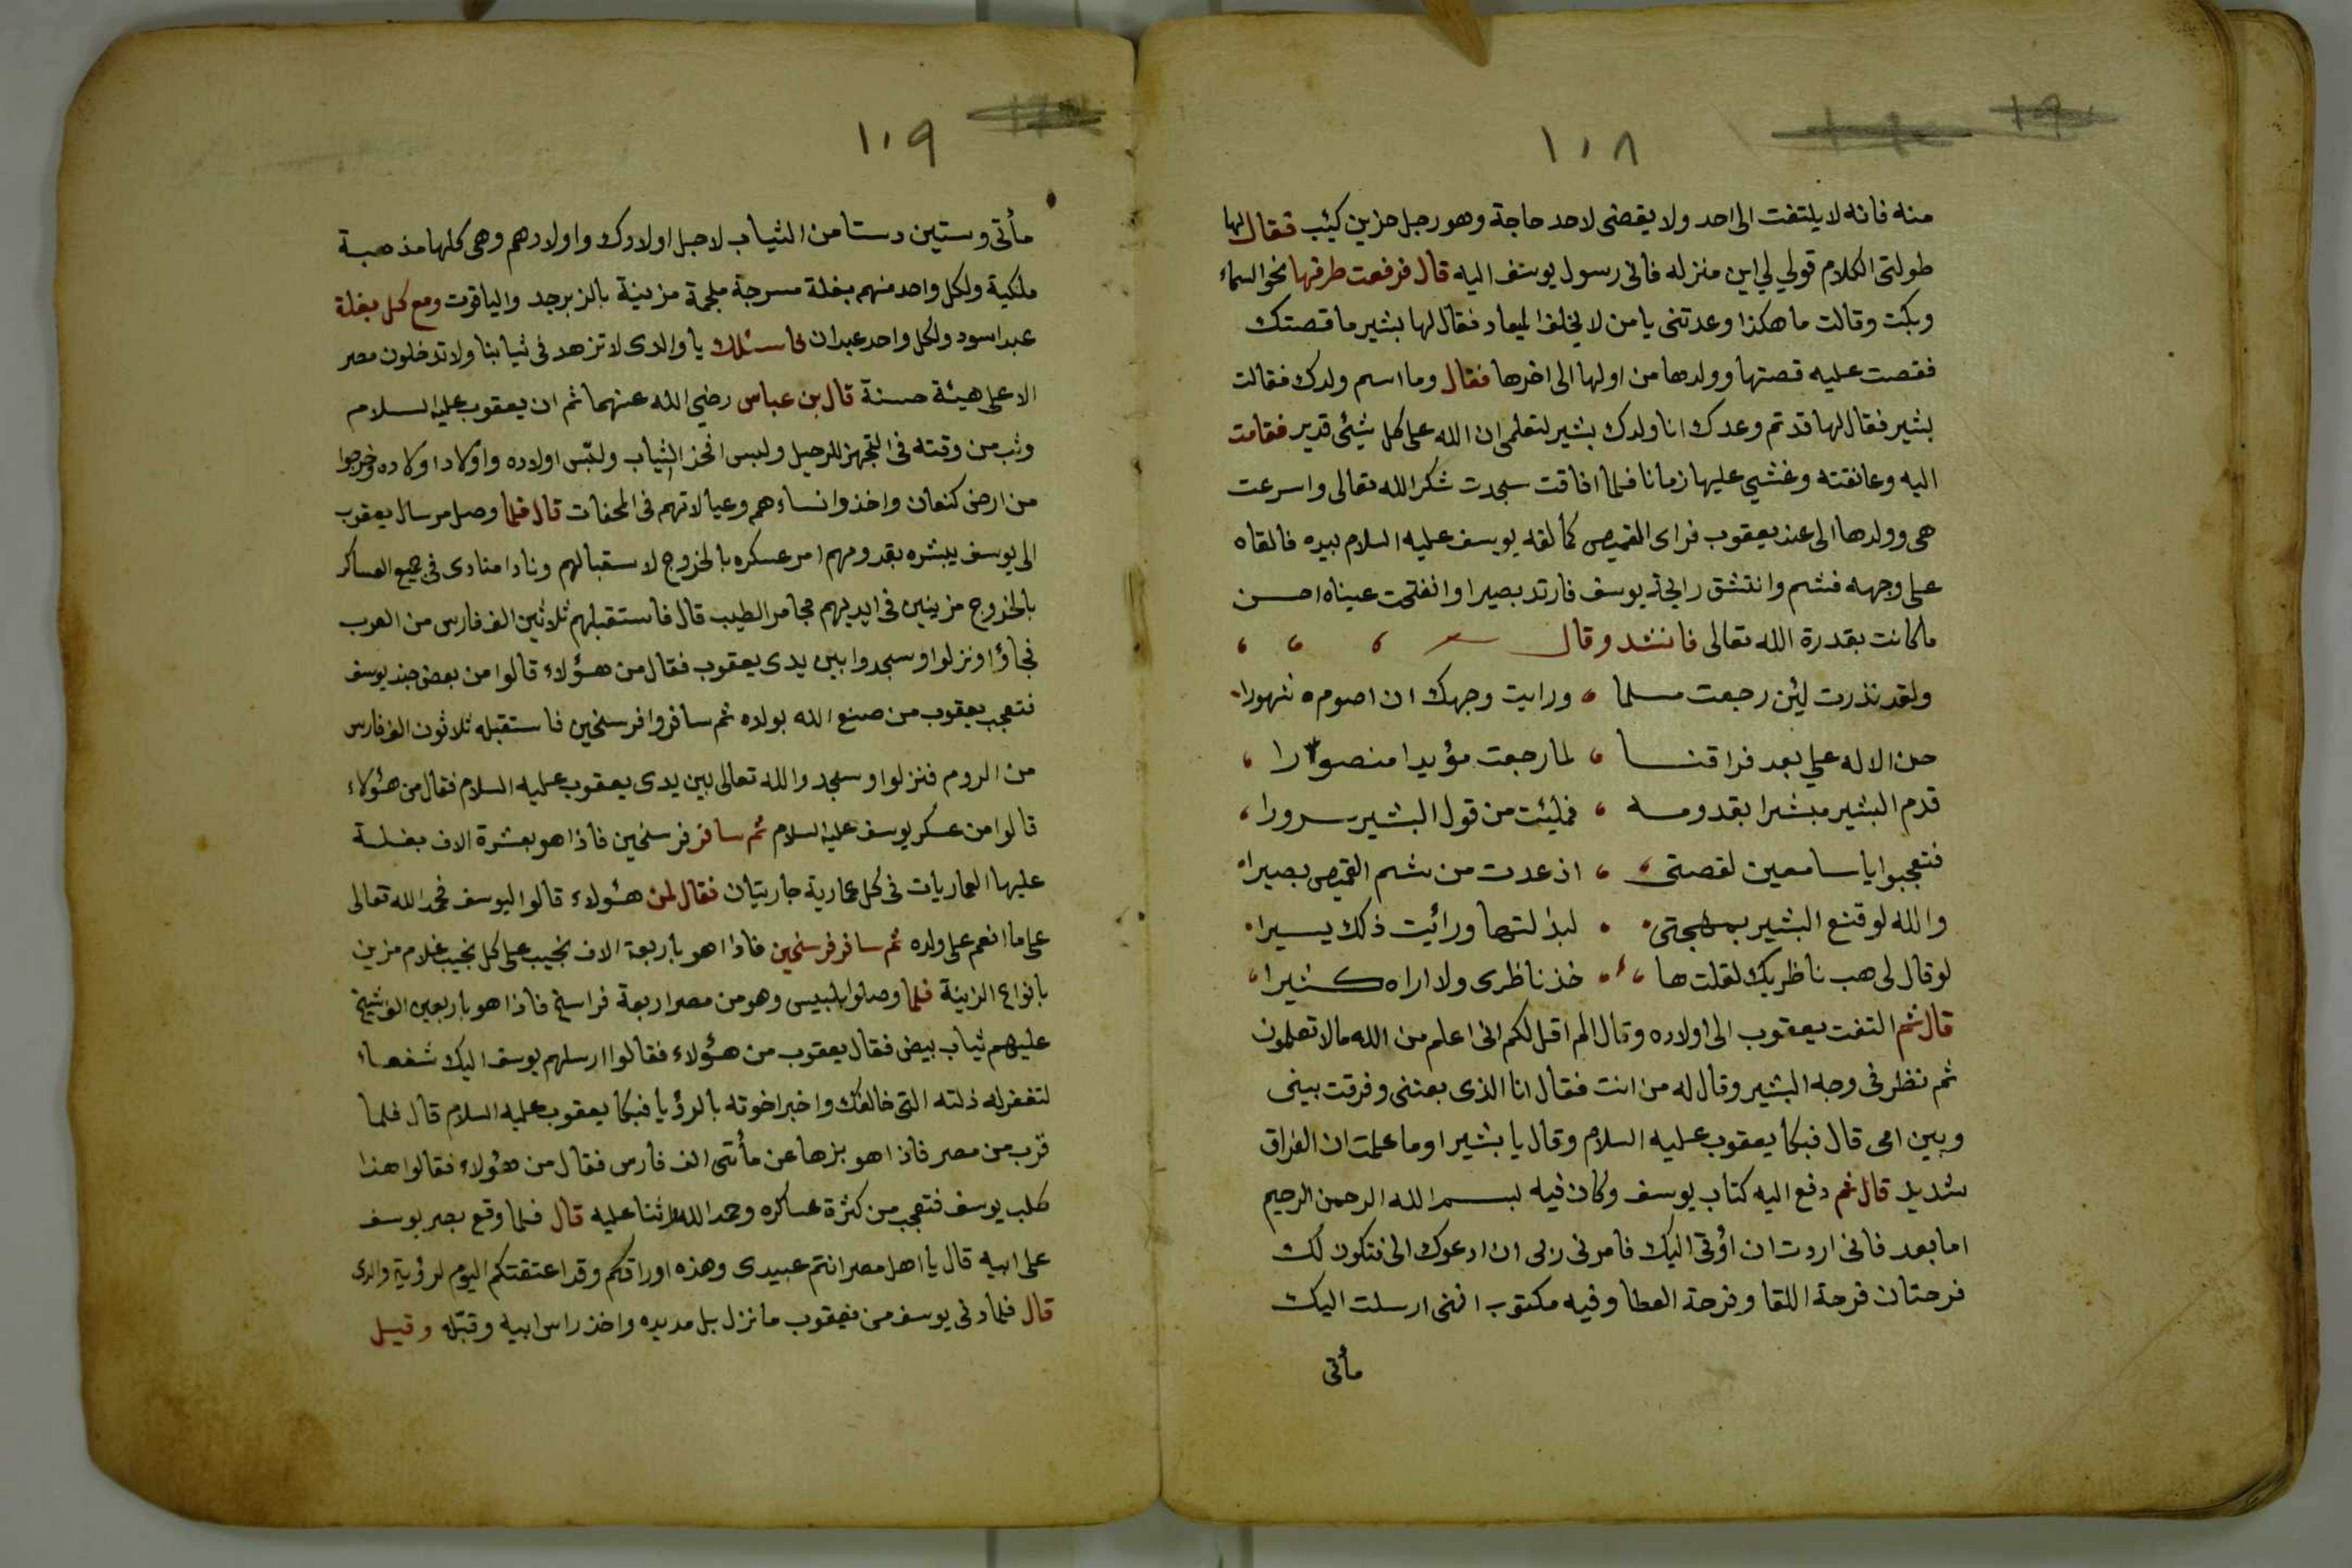 ١٠٨
منه فانه لا يلتفت الى احد ولا يقضى لاحد حاجة وهو رجل حزين كيئب فقال لها
طولتى الكلام قولي لي اين منزله فانى رسول يوسف اليه قال فرفعت طرفها نحو السماء
وبكت وقالت ما هكذا وعدتنى يا من لا يخلف الميعاد فقال لها بشير ما قصتك
فقصت عليه قصتها وولدها من اولها الى اخرها فقال وما اسم ولدك فقالت
بشير فقال لها قد تم وعدك انا ولدك بشير لتعلمى ان الله على كل شيئ قدير فقامت
اليه وعانقته وغشي عليها زمانا فلما افاقت سجدت شكر الله تعالى واسرعت
هى وولدها الى عند يعقوب فراى القميص كما لفه يوسف عليه السلام بيده فالقاه
على وجهه فشم وانتشق رايحة يوسف فارتد بصيرا وانفتحت عيناه احسن
ما كانت بقدرة الله تعالى فانشد وقال
ولقد نذرت ليئن رجعت مسلما ورايت وجهك ان اصومه شهورا
حن الاله علي بعد فراقنا لما رجعت مؤيدا منصورا
قدم البشير مبشرا بقدومه فمليئت من قول البشير سرورا
فتعجبوا يا سامعين لقصتى اذ عدت من شم القميص بصيرا
والله لو قنع البشير بمهجتى لبذلتها ورأيت ذلك يسيرا
لو قال لى هب ناظريك لقلت ها خذ ناظرى ولا اراه كثيرا
قال ثم التفت يعقوب الى اولاده وقال الم اقل لكم انى اعلم من الله ما لا تعلمون
ثم نظر فى وجه البشير وقال له من انت فقال انا الذى بعتنى وفرقت بينى
وبين امى قال فبكا يعقوب عليه السلام وقال يا بشير اوما علمت ان الفراق
شديد قال ثم دفع اليه كتاب يوسف وكان فيه بسم الله الرحمن الرحيم
اما بعد فانى اردت ان اؤتى اليك فامرنى ربى ان ادعوك الى فتكون لك
فرحتان فرحة اللقا وفرحة العطا وفيه مكتوب اننى ارسلت اليك
مأتى
١٠٩
مأتى وستين دستا من الثياب لاجل اولادك واولادهم وهى كلها مذهبة
ملكية ولكل واحد منهم بغلة مسرجة ملجمة مزينة بالزبرجد والياقوت ومع كل بغلة
عبد اسود ولكل واحد عبدان فاسئلك يا والدى لا تزهد فى ثيابنا ولا تدخلون مصر
الا على هيئة حسنة قال بن عباس رضي الله عنهما ثم ان يعقوب عليه السلام
وثب من وقته فى التجهز للرحيل ولبس افخذ الثياب ولبّس اولاده واولاد اولاده وخرجوا
من ارض كنعان واخذوا نساءهم وعيالاتهم فى المحفات قال فلما وصل مرسال يعقوب
الى يوسف يبشره بقدومهم امر عسكره بالخروج لاستقبالهم ونادا منادى فى جميع العساكر
بالخروج مزينين فى ايديهم مجامر الطيب قال فاستقبلهم ثلاثين الف فارس من العرب
فجاؤا ونزلوا وسجدوا بين يدى يعقوب فقال من هؤلاء قالوا من بعض جند يوسف
فتعجب يعقوب من صنع الله بولده ثم سافروا فرسخين فاستقبله ثلاثون الف فارس
من الروم فنزلوا وسجدوا لله تعالى بين يدى يعقوب عليه السلام فقال من هؤلاء
قالوا من عسكر يوسف عليه السلام ثم سافر فرسخين فاذا هو بعشرة الاف بغلة
عليها العماريات فى كل عمارية جاريتان فقال لمن هؤلاء قالوا ليوسف فحمد الله تعالى
على ما انعم على ولده ثم سافر فرسخين فاذا هو باربعة الاف نجيب على كل نجيب غلام مزين
بانواع الزينة فلما وصلوا بلبيس وهو من مصر اربعة فراسخ فاذا هو باربعين الف شيخ
عليهم ثياب بيض فقال يعقوب من هؤلاء فقالوا ارسلهم يوسف اليك شفعاء
لتغفر له ذلته التى خالفك واخبر اخوته بالرؤيا فبكا يعقوب عليه السلام قال فلما
قرب من مصر فاذا هو بزها عن مأتى الف فارس فقال من هؤلاء فقالوا هذا
طلب يوسف فتعجب من كثرة عساكره وحمد الله واثنا عليه قال فلما وقع بصر يوسف
على ابيه قال يا اهل مصر انتم عبيدى وهذه اوراقكم وقد اعتقتكم اليوم لرؤية والدى
قال فلما دنى يوسف من يعقوب ما نزل بل مد يده واخذ راس ابيه وقبّله وقيل